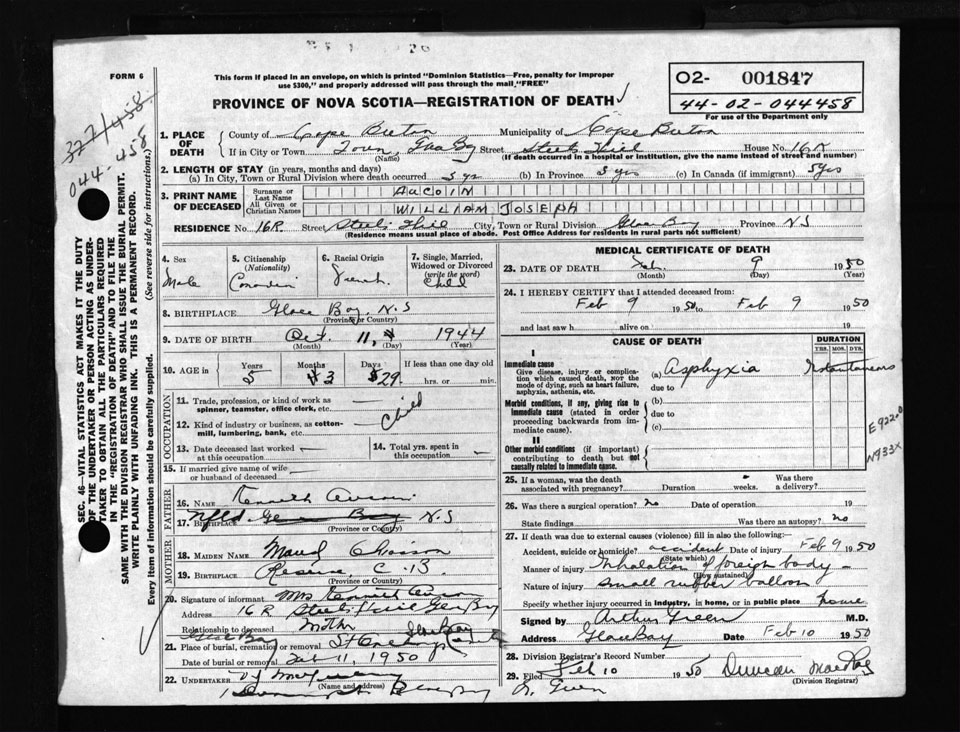 FORM 6
This form if placed in an envelope, on which is printed "Dominion Statistics—Free, penalty for improper
use $300," and properly addressed will pass through the mail, "FREE"
PROVINCE OF NOVA SCOTIA—REGISTRATION OF DEATH
02- 001847
44-02-044458
For use of the Department only
327/458
044.458
SEC. 46—VITAL STATISTICS ACT MAKES IT THE DUTY
OF THE UNDERTAKER OR PERSON ACTING AS UNDER-
TAKER TO OBTAIN ALL THE PARTICULARS REQUIRED
IN THE "REGISTRATION OF DEATH" AND TO FILE THE
SAME WITH THE DIVISION REGISTRAR WHO SHALL ISSUE THE BURIAL PERMIT.
WRITE PLAINLY WITH UNFADING INK. THIS IS A PERMANENT RECORD.
Every item of information should be carefully supplied. (See reverse side for instructions.)
1. PLACE OF DEATH
County of Cape Breton Municipality of Cape Breton
If in City or Town Town, Glace Bay Street Steeles Hill House No. 16R
(Name) (If death occurred in a hospital or institution, give the name instead of street and number)
2. LENGTH OF STAY (in years, months and days)
(a) In City, Town or Rural Division where death occurred 5 yrs (b) In Province 5 yrs (c) In Canada (if immigrant) 5 yrs
3. PRINT NAME OF DECEASED
Surname or Last Name AUCOIN
All Given or Christian Names WILLIAM JOSEPH
RESIDENCE No. 16R Street Steeles Hill City, Town or Rural Division Glace Bay Province N S
(Residence means usual place of abode. Post Office Address for residents in rural parts not sufficient)
4. Sex Male
5. Citizenship (Nationality) Canadian
6. Racial Origin French
7. Single, Married, Widowed or Divorced (write the word) Child
8. BIRTHPLACE Glace Bay, N.S
(Province or Country)
9. DATE OF BIRTH Oct. 11, 1944
(Month) (Day) (Year)
10. AGE IN Years 5 Months 3 Days 29 If less than one day old
hrs. or min.
OCCUPATION
11. Trade, profession, or kind of work as
spinner, teamster, office clerk, etc. Child
12. Kind of industry or business, as cotton-
mill, lumbering, bank, etc.
13. Date deceased last worked at this occupation
14. Total yrs. spent in this occupation
15. If married give name of wife
or husband of deceased
FATHER
16. NAME Kenneth Aucoin
17. BIRTHPLACE Nfld Glace Bay N.S
(Province or Country)
MOTHER
18. MAIDEN NAME Maud Chiasson
19. BIRTHPLACE Reserve, C.B.
(Province or Country)
20. Signature of informant Mrs Kenneth Aucoin
Address 16 R Steeles Hill Glace Bay
Relationship to deceased Mother
21. Place of burial, cremation or removal Glace Bay
Date of burial or removal Feb 11, 1950
22. UNDERTAKER
(Name and address)
MEDICAL CERTIFICATE OF DEATH
23. DATE OF DEATH Feb. 9 1950
(Month) (Day) (Year)
24. I HEREBY CERTIFY that I attended deceased from:
Feb 9 1950 to Feb 9 1950
and last saw h alive on 19
CAUSE OF DEATH
DURATION
YRS. MOS. DYS.
I
Immediate cause
Give disease, injury or compli-
cation which caused death, NOT the
mode of dying, such as heart failure,
asphyxia, asthenia, etc.
(a) Asphyxia Instantaneous
due to
Morbid conditions, if any, giving rise to
immediate cause (stated in order
proceeding backwards from im-
mediate cause).
(b)
due to
(c)
II
Other morbid conditions (if important)
contributing to death but not
causally related to immediate cause.
E922.0
N933X
25. If a woman, was the death
associated with pregnancy? Duration weeks. Was there
a delivery?
26. Was there a surgical operation? No Date of operation 19
State findings Was there an autopsy? no
27. If death was due to external causes (violence) fill in also the following:
Accident, suicide or homicide? accident Date of injury Feb 9 1950
(State which)
Manner of injury Inhalation of foreign body -
(How sustained)
Nature of injury small rubber balloon
Specify whether injury occurred in industry, in home, or in public place home
Signed by Arthur Green M.D.
Address Glace Bay Date Feb 10 1950
28. Division Registrar's Record Number
29. Filed Feb 10 1950 Duncan
(Division Registrar)